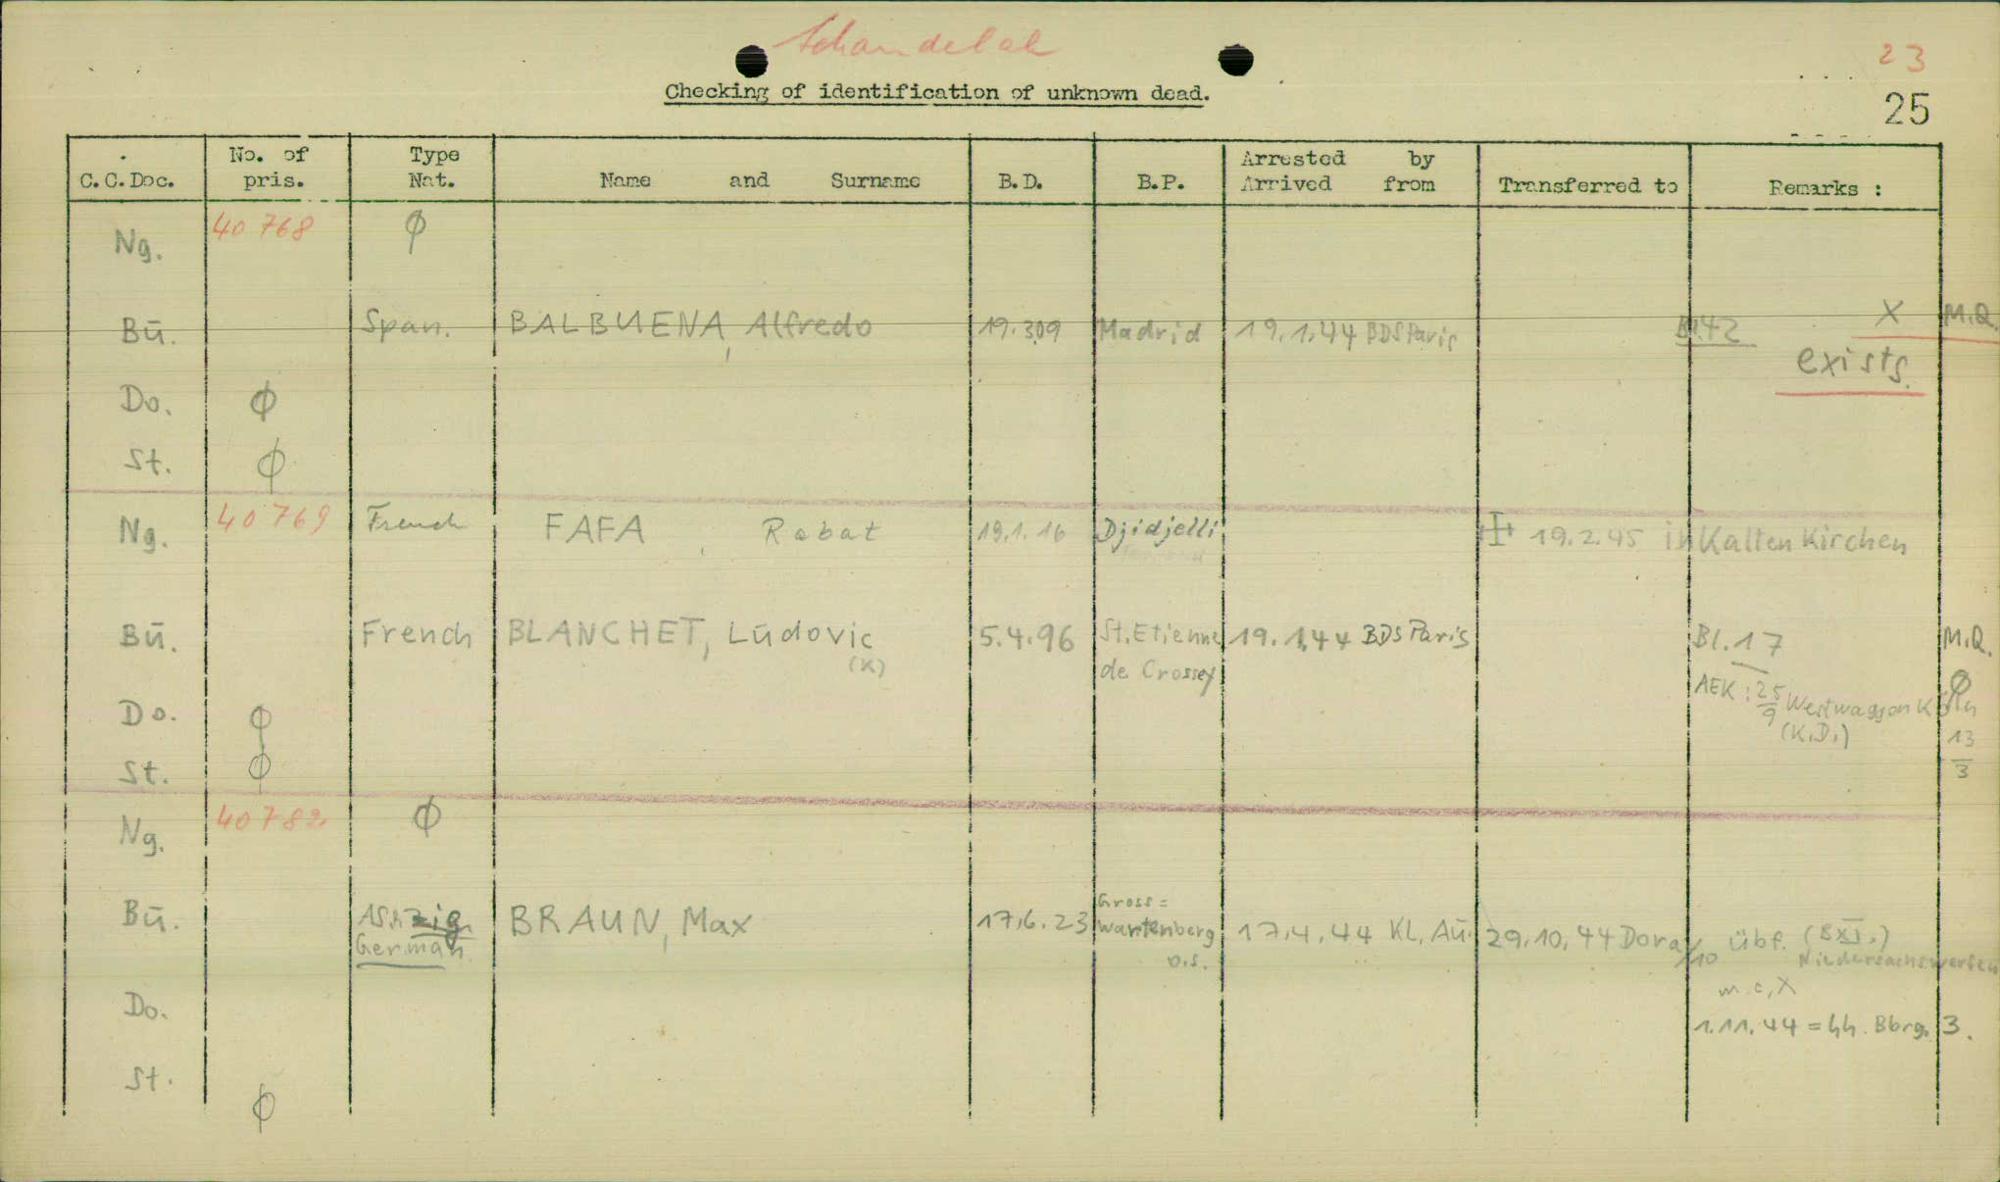 Schandelah
23
Checking of identification of unknown dead.
25
C.C.Doc. No. of pris. Type Nat. Name and Surname B.D. B.P. Arrested by Arrived from Transferred to Remarks :
Ng. 40 768 ϕ
Bū. Span. BALBUENA, Alfredo 19.3.09 Madrid 19.1.44 BDS Paris Bl.42 X M.Q.
exists.
Do. ϕ
St. ϕ
Ng. 40 769 French FAFA, Rabat 19.1.16 Djidjelli 19.2.45 in Kaltenkirchen
Bū. French BLANCHET, Lūdovic 5.4.96 St. Etienne 19.1.44 BDS Paris Bl.17 M.Q.
(K) de Crossey
AEK: 25/9 Westwaggon Köln
(K.D.) 13/3
Do. ϕ
St. ϕ
Ng. 40 782 ϕ
Bū. German BRAUN, Max 17.6.23 Gross=
Wartenberg 17.4.44 KL. Aū. 29.10.44 Dora/10 übf. (BXI.)
O.S. Niedersachswerfen
m.c,X
Do. 1.11.44 = hh. Bbrg. 3.
St. ϕ